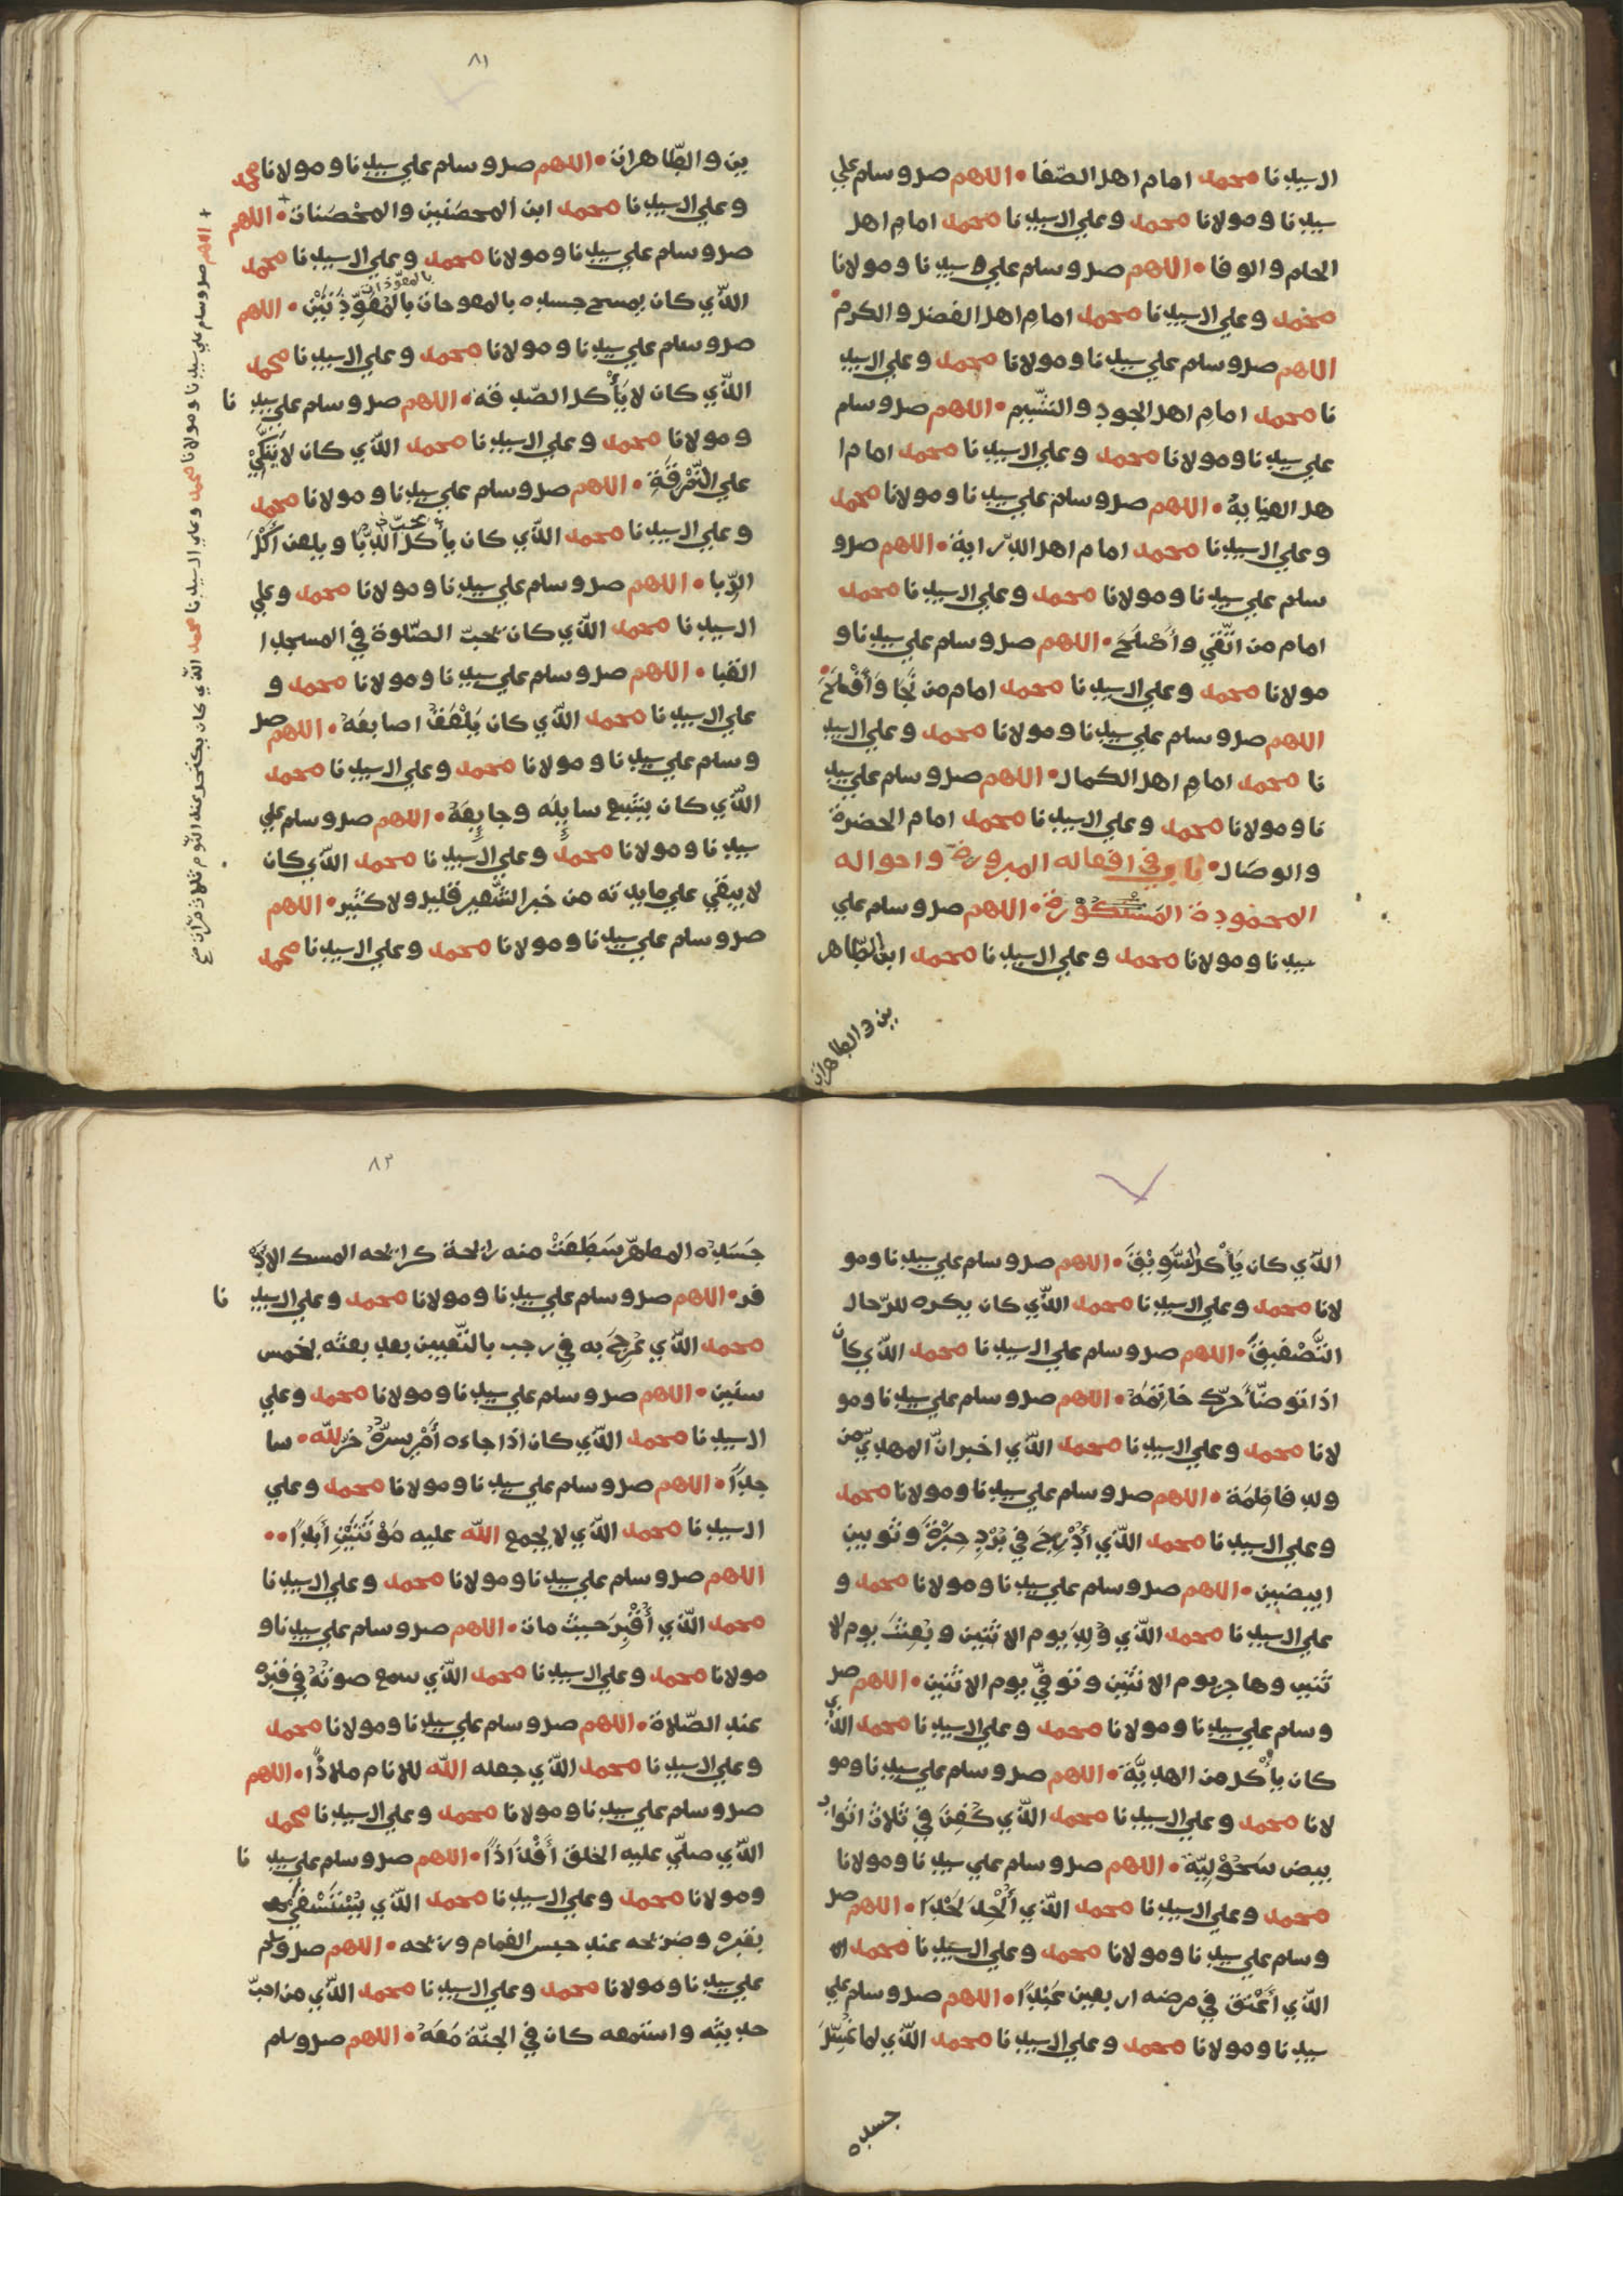 ال سيدنا محمد امام اهل الصّفا • اللهم صل وسلم علي
سيدنا ومولانا محمد وعلي ال سيدنا محمد امام اهل
الحلم والوفا • اللهم صل وسلم علي سيدنا ومولانا
محمد وعلي ال سيدنا محمد امام اهل الفضل والكرم •
اللهم صل وسلم علي سيدنا ومولانا محمد وعلي ال سيد
نا محمد امام اهل الجود والشّيم • اللهم صل وسلم
علي سيدنا ومولانا محمد وعلي ال سيدنا محمد امام ا
هل العناية • اللهم صل وسلم علي سيدنا ومولانا محمد
وعلي ال سيدنا محمد امام اهل الدّراية • اللهم صل و
سلم علي سيدنا ومولانا محمد وعلي ال سيدنا محمد
امام من اتّقي وأصْلَحَ • اللهم صل وسلم علي سيدنا و
مولانا محمد وعلي ال سيدنا محمد امام من نَجَا وَأفْلَحَ •
اللهم صل وسلم علي سيدنا ومولانا محمد وعلي ال سيد
نا محمد امام اهل الكمال • اللهم صل وسلم علي سيد
نا ومولانا محمد وعلي ال سيدنا محمد امام الحضرة
والوصال • في افعاله المبرورة واحواله
المحمودة المَشْكُوْرة • اللهم صل وسلم علي
سيدنا ومولانا محمد وعلي ال سيدنا محمد ابن الطّاهر
ين والطاهرات
٨١
ين والطّاهرات • اللهم صل وسلم علي سيدنا ومولانا محمد
وعلي ال سيدنا محمد ابن المحصَنين والمحْصَنات • اللهم
صل وسلم علي سيدنا ومولانا محمد وعلي ال سيدنا محمد
بالمعوّذات
الّذي كان يمسح جسده بالمُعَوِّذَتَيْن • اللهم
صل وسلم علي سيدنا ومولانا محمد وعلي ال سيدنا محمد
الّذي كان لا يَأْكل الصّدقة • اللهم صل وسلم علي سيد نا
ومولانا محمد وعلي ال سيدنا محمد الّذي كان لا يَتَّكِئُ
علي النُّمْرقَةِ • اللهم صل وسلم علي سيدنا ومولانا محمد
يحبّ
وعلي ال سيدنا محمد الّذي كان يأكل الدبّا ويلعن أكْلَ
الرِّبا • اللهم صل وسلم علي سيدنا ومولانا محمد وعلي
ال سيدنا محمد الّذي كان يحبّ الصّلوة في المسجد ا
القبا • اللهم صل وسلم علي سيدنا ومولانا محمد و
علي ال سيدنا محمد الّذي كان يَلْعَقُ اصابعَهُ • اللهم صل
وسلم علي سيدنا ومولانا محمد وعلي ال سيدنا محمد
الّذي كان يتبع سايِلَه وجايِعَهُ • اللهم صل وسلم علي
سيدنا ومولانا محمد وعلي ال سيدنا محمد الّذي كان
لا يبقي علي مايدته من خبز الشَّعير قليل ولا كثير • اللهم
صل وسلم علي سيدنا ومولانا محمد وعلي ال سيدنا محمد
+ اللهم صل وسلم علي سيدنا ومولانا محمد وعلي ال سيدنا محمد الّذي كان يكتحل عند النّوم ثلاث مرّات صح
الّذي كان يَأْكل السَّوِيْقَ • اللهم صل وسلم علي سيدنا ومو
لانا محمد وعلي ال سيدنا محمد الّذي كان يكره للرّجال
التَّصْفيقَ • اللهم صل وسلم علي ال سيدنا محمد الّذي كان
اذا توضّأ حرّك خاتِمَهُ • اللهم صل وسلم علي سيدنا ومو
لانا محمد وعلي ال سيدنا محمد الّذي اخبر انّ المهديّ من
ولد فاطِمَة • اللهم صل وسلم علي سيدنا ومولانا محمد
وعلي ال سيدنا محمد الّذي أدْرِجَ في بُرْدِ حِبَرَةٍ وثوبين
ابيضين • اللهم صل وسلم علي سيدنا ومولانا محمد و
علي ال سيدنا محمد الّذي وُلِدَ يوم الاثنين وبُعِثَ يوم لا
ثنين وهاجر يوم الاثنين وتوفّي يوم الاثنين • اللهم صل
وسلم علي سيدنا ومولانا محمد وعلي ال سيدنا محمد الّذي
كان يأكُل من الهديَّة • اللهم صل وسلم علي سيدنا ومو
لانا محمد وعلي ال سيدنا محمد الّذي كُفِنَ في ثلاث اثواب
بيض سَحُوْلِيّة • اللهم صل وسلم علي سيدنا ومولانا
محمد وعلي ال سيدنا محمد الّذي أُلْحِدَ لَحْدَا • اللهم صل
وسلم علي سيدنا ومولانا محمد وعلي ال سيدنا محمد
الّذي أعْتَقَ في مرضه اربعين عَبْدًا • اللهم صل وسلم علي
سيدنا ومولانا محمد وعلي ال سيدنا محمد الّذي لما غُسِّلَ
جسده
٨٢
جَسَدُه المطهّر سَطَعَتْ منه رائحة كرائحه المسك الاذ
فر • اللهم صل وسلم علي سيدنا ومولانا محمد وعلي ال سيد نا
محمد الّذي عُرِجَ به في رجب بالتّعيين بعد بعثه بخمس
سنين • اللهم صل وسلم علي سيدنا ومولانا محمد وعلي
ال سيدنا محمد الّذي كان اذا جاءه أمْر يسرُّهُ خرّ لله • سا
جدًا • اللهم صل وسلم علي سيدنا ومولانا محمد وعلي
ال سيدنا محمد الّذي لا يجمع الله عليه مَوْتَتَيْنِ أَبَدًا • •
اللهم صل وسلم علي سيدنا ومولانا محمد وعلي ال سيدنا
محمد الّذي أُقْبِرَ حَيث مات • اللهم صل وسلم علي سيدنا و
مولانا محمد وعلي ال سيدنا محمد الّذي سمع صوتُهُ في قبْرِه
عند الصّلاة • اللهم صل وسلم علي سيدنا ومولانا محمد
وعلي ال سيدنا محمد الّذي جعله الله للانام ملاذًا • اللهم
صل وسلم علي سيدنا ومولانا محمد وعلي ال سيدنا محمد
الّذي صلّي عليه الخلق أفْذَاذًا • اللهم صل وسلم علي سيد نا
ومولانا محمد وعلي ال سيدنا محمد الّذي يُسْتَسْقي
بقبره وضريحه عند حبس الغمام وريحه • اللهم صل وسلم
علي سيدنا ومولانا محمد وعلي ال سيدنا محمد الّذي من احبّ
حديثه واستمعه كان في الجنّة مَعَهُ • اللهم صل وسلم